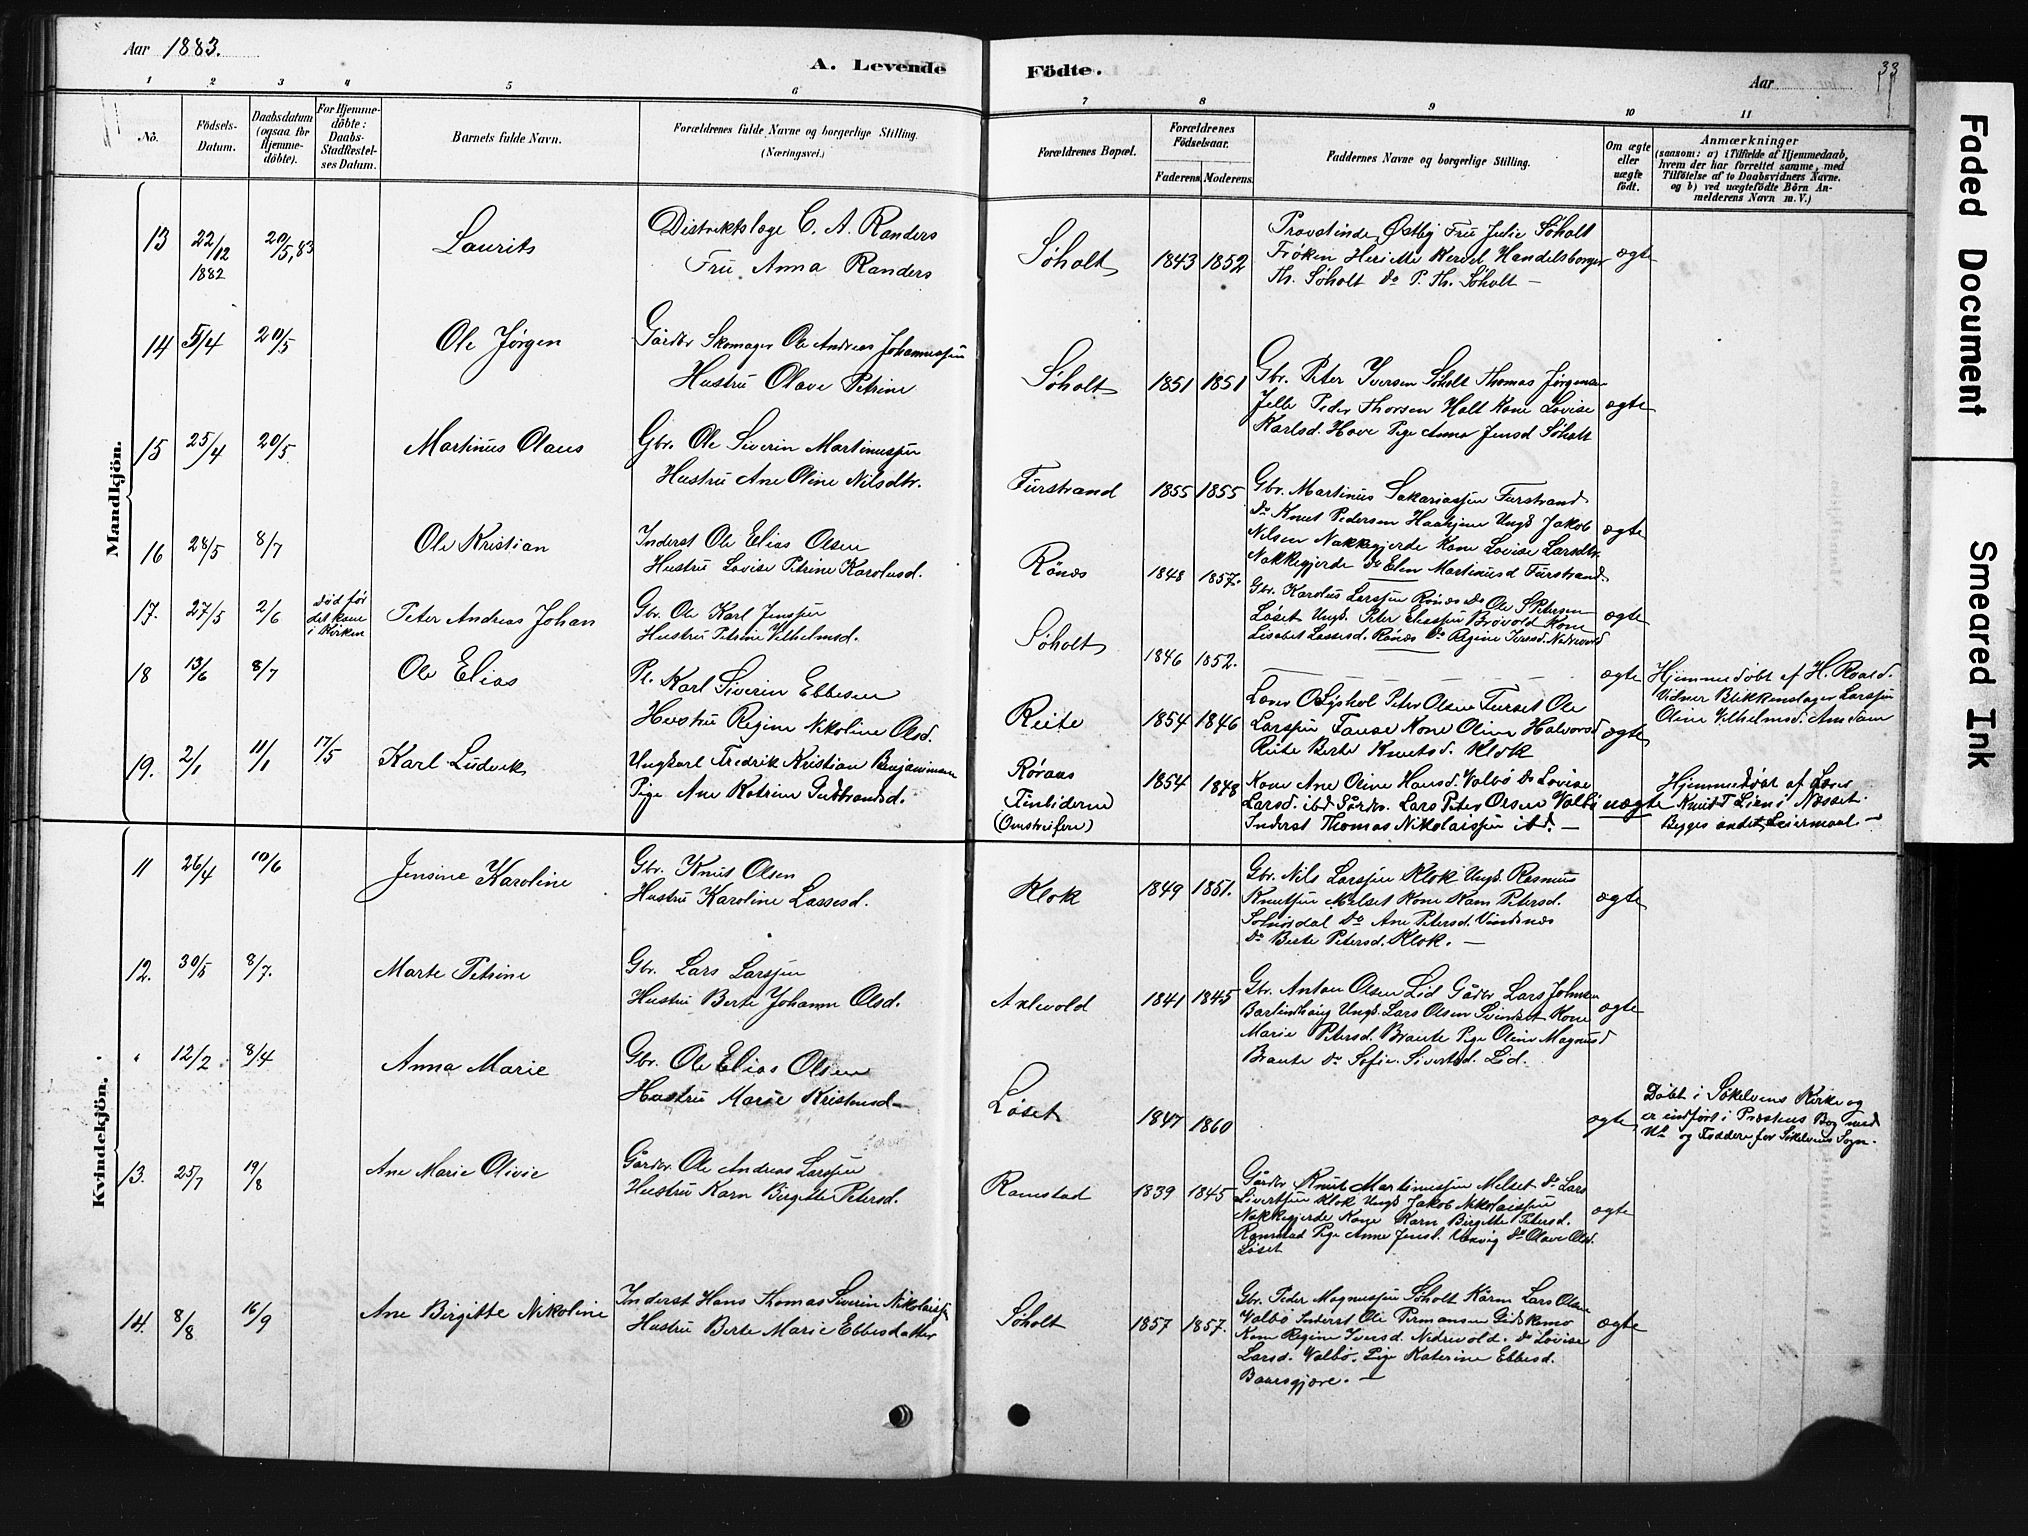 Aar 1883.
A. Levende Födte.
Aar
33
1 2 3 4 5 6 7 8 9 10 11
No.
Födsels-Datum.
Daabsdatum (ogsaa for Hjemme-döbte).
For Hjemme-döbte: Daabs-Stadfæstel-ses Datum.
Barnets fulde Navn.
Forældrenes fulde Navne og borgerlige Stilling. (Næringsvei.)
Forældrenes Bopæl.
Forældrenes Födselsaar.
Faderens. Moderens.
Faddernes Navne og borgerlige Stilling.
Om ægte eller uægte födt.
Anmærkninger
(saasom: a) i Tilfælde af Hjemmedaab, hvem der har forrettet samme, med Tilföielse af to Daabsvidners Navne. og b) ved uægtefödte Börn An-melderens Navn m. V.)
Mandkjön.
13 22/12 1882 20/5,83 Laurits
Distriktslæge C. A. Randers
Fru Anna Randers
Søholt 1843 1852
Provstinde Østby Fru Julie Søholt
Frøken Handelsborger
Th. Søholt do P. Th. Søholt —
ægte
14 5/4 20/5 Ole Jørgen
Gårdbr Skomager Ole Andreas Johannessen
Hustru Olave Petrine
Søholt 1851 1851
Gbr. Peter Iversen Søholt Thomas Jørgensen
Peder Thorsen Holt Kone Lovise
Karlsd. Hove Pige Anna Jensd Søholt
ægte
15 25/4 20/5 Martinus Olaus
Gbr. Ole Siverin Martinussen
Hustru Ane Oline Nilsdtr.
Furstrand 1855 1855
Gbr. Martinus Sakariassen Furstrand
do Knut Pedersen Ungk Jakob
Nilsen Nakkegjerde Kone Lovise Larsdtr.
Nakkegjerde do Elen Martinusd Furstrand
ægte
16 28/5 8/7 Ole Kristian
Inderst Ole Elias Olsen
Hustru Lovise Petrine Karolusd.
Rønæs 1848 1857.
Gbr. Karolus Larssen Rønæs do Ole S Petersen
Løset Ungk. Peter Eliassen Brøvold Kone
Lisabet Lassesd. Rønæs do Regine Iversd. Nedrevold
ægte
17. 27/5 2/6 død før det kom i Kirken
Peter Andreas Johan
Gbr. Ole Karl Jenssen
Hustru Petrine Vilhelmsd.
Søholt 1846 1852.
ægte
18 13/6 8/7 Ole Elias
Pl. Karl Siverin Ebbesen
Hustru Regine Nikoline Olsd.
Reite 1854 1846
Lærer O Peter Olsen Furset Ole
Larssen Fause Kone Oline Halvorsd
Reite Berte Knutsd. Klok
ægte
Hjemmedøbt af H. Roald.
Vidner Blikkenslager Larssen
Oline Vilhelmsd. Amdam
19. 2/1 11/1 17/5 Karl Ludvik
Ungkarl Fredrik Kristian Benjaminsen
Pige Ane Katrine Gudbrandsd.
(Omstreifere)
1854 1848
Kone Ane Oline Hansd. Valbø do Lovise
Larsd. ibd Gårdbr. Lars Peter Olsen Valbø
Inderst Thomas Nikolaissen ibd. —
uægte
Hjemmedøbt af Lærer
Knut T Liens Næsset.
Begges andet Leiermaal —
Kvindekjön.
11 26/4 10/6 Jensine Karoline
Gbr. Knut Olsen
Hustru Karoline Lassesd.
Klok 1849 1851.
Gbr. Nils Larssen Klok Ungk. Rasmus
Knutsen Melset Kone Karn Petersd.
Solnørdal do Ane Petersd. Vindsnæs
do Berte Petersd. Klok. —
ægte
12. 30/5 8/7. Marte Petrine
Gbr. Lars Larssen
Hustru Berte Johanne Olsd.
Andevold 1841 1845
Gbr. Anton Olsen Lid Gårdbr Lars Johnsen
Ungk. Lars Olsen Svindset Kone
Marie Petersd. Braute Pige Oline Magnusd
Braute do Sofie Sivertsd. Lid.
ægte
" 12/2 8/4 Anna Marie
Gbr. Ole Elias Olsen
Hustru Marie Kristensd—
Løset 1847 1860
ægte
Døbt i Søkelvens Kirke og
er indført i Præstens Bog med
No og Faddere for Søkelvens Sogn.
13. 25/7 19/8 Ane Marie Olivie
Gårdbr. Ole Andreas Larssen
Hustru Karn Birgitte Petersd.
Ramstad 1839 1845
Gårdbr Knut Martinussen Melset do Lars
Sivertsen Klok Ungk Jakob Nikolaissen
Nakkegjerde Kone Karn Birgitte Petersd.
Ramstad Pige Anne Jensd. Vaksvig do Olave Olsd.
Løset
ægte
14. 8/8 16/9 Ane Birgitte Nikoline
Inderst Hans Thomas Siverin Nikolaissen
Hustru Berte Marie Ebbesdatter
Søholt 1857 1857.
Gbr. Peder Magnussen Søholt Kårm. Lars Olsen
Valbø Inderst Ole Permansen Gidskemo
Kone Regine Iversd. Nedrevold. do Lovise
Larsd. Valbø. Pige Katerine Ebbesd.
Baarsgjøre. —
ægte
Faded Document
Smeared Ink